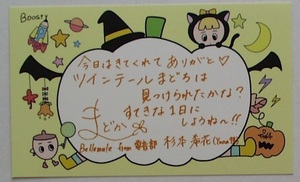 Boost
今日はきてくれて ありがと♡
ツインテールまどろは
見つけられたかな?
すてきな1日に
しようねー!!
まどか
Bellemule from 音部 杉本 寿花 (Yuna